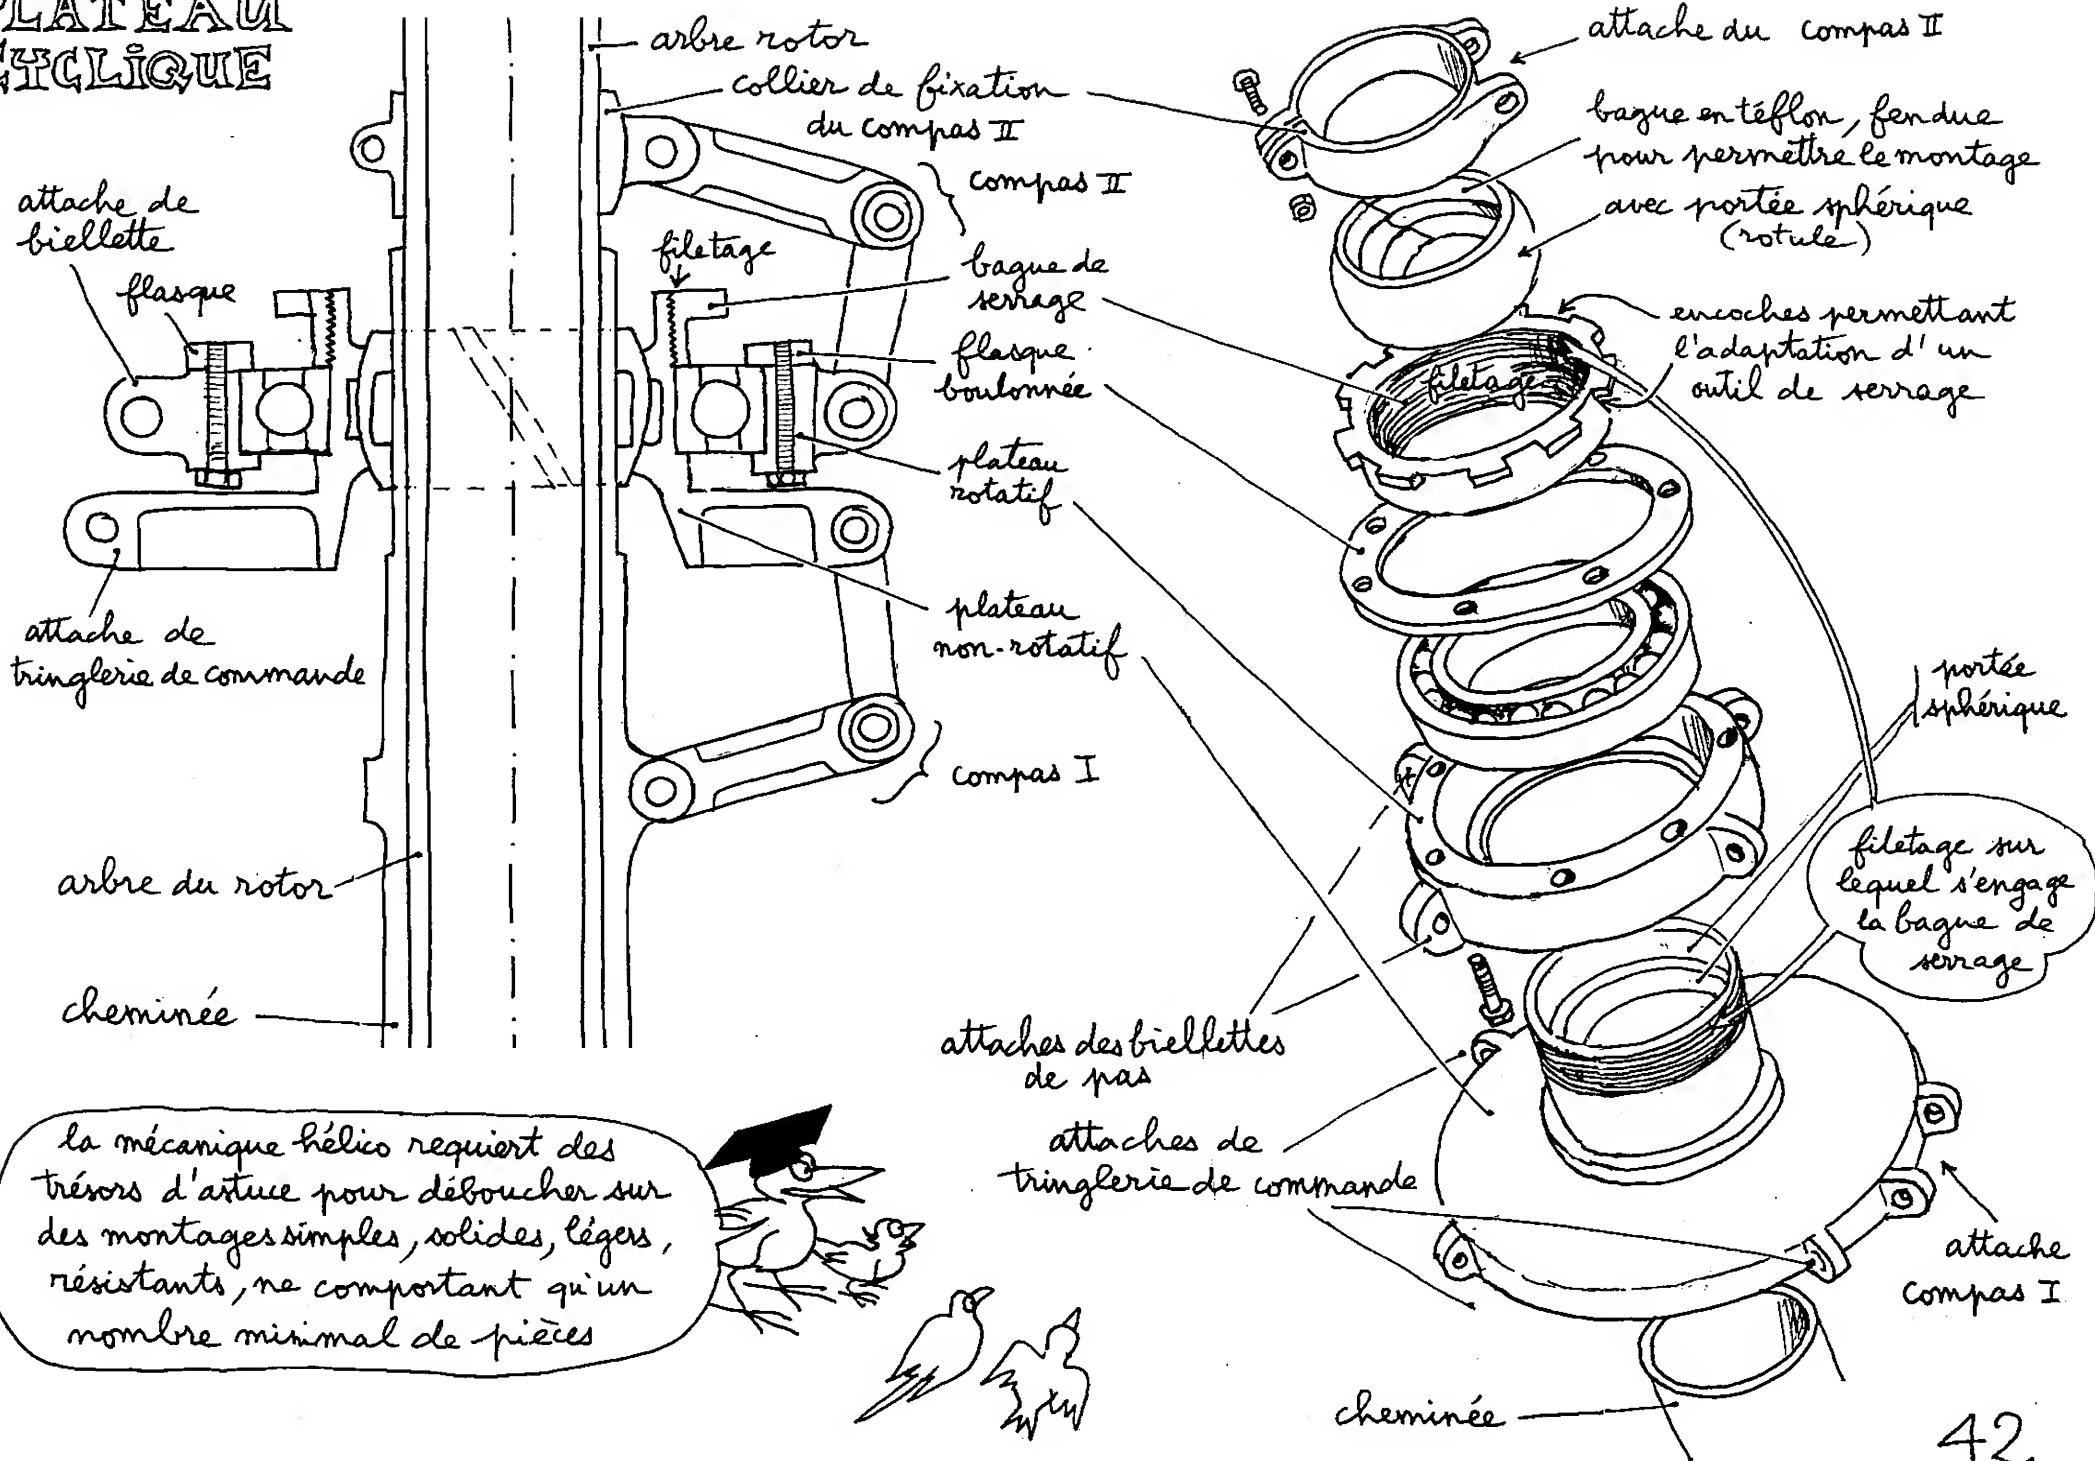 PLATEAU
CYCLIQUE
arbre rotor
collier de fixation
du compas II
compas II
attache de
biellette
flasque
filetage
bague de
serrage
flasque
boulonnée
plateau
rotatif
plateau
non-rotatif
attache de
tringlerie de commande
compas I
arbre du rotor
cheminée
attache du compas II
bague en téflon, fendue
pour permettre le montage
avec portée sphérique
(rotule)
encoches permettant
l'adaptation d'un
outil de serrage
filetage
portée
sphérique
filetage sur
lequel s'engage
la bague de
serrage
attaches des biellettes
de pas
attaches de
tringlerie de commande
attache
compas I
cheminée
la mécanique hélico requiert des
trésors d'astuce pour déboucher sur
des montages simples, solides, légers,
résistants, ne comportant qu'un
nombre minimal de pièces
42